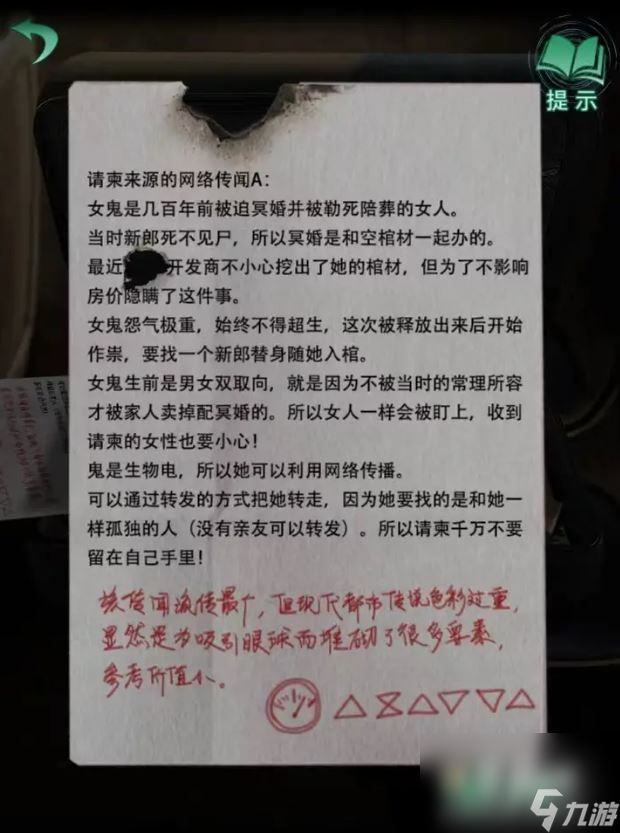 提示
请柬来源的网络传闻A：
女鬼是几百年前被迫冥婚并被勒死陪葬的女人。
当时新郎死不见尸，所以冥婚是和空棺材一起办的。
最近开发商不小心挖出了她的棺材，但为了不影响
房价隐瞒了这件事。
女鬼怨气极重，始终不得超生，这次被释放出来后开始
作祟，要找一个新郎替身随她入棺。
女鬼生前是男女双取向，就是因为不被当时的常理所容
才被家人卖掉配冥婚的。所以女人一样会被盯上，收到
请柬的女性也要小心！
鬼是生物电，所以她可以利用网络传播。
可以通过转发的方式把她转走，因为她要找的是和她一
样孤独的人（没有亲友可以转发）。所以请柬千万不要
留在自己手里！
该传闻流传最广，但现代都市传说色彩过重，
显然是为吸引眼球而堆砌了很多要素，
参考价值小。
九游